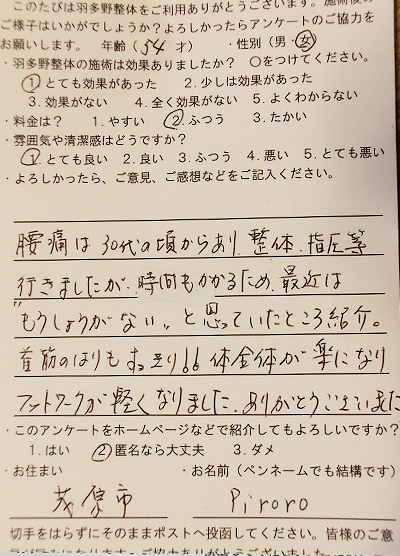 このたびは羽多野整体をご利用ありがとうございます。施術後の
ご様子はいかがでしょうか？よろしかったらアンケートのご協力を
お願いします。 年齢（54才） ・性別（男・女）
・羽多野整体の施術は効果ありましたか？ ○をつけてください。
1. とても効果があった 2. 少しは効果あった
3. 効果がない 4. 全く効果がない 5. よくわからない
・料金は？ 1. やすい 2. ふつう 3. たかい
・雰囲気や清潔感はどうですか？
1. とても良い 2. 良い 3. ふつう 4. 悪い 5. とても悪い
・よろしかったら、ご意見、ご感想などをご記入ください。
腰痛は30代の頃からあり、整体、指圧等
行きましたが、時間もかかるため、最近は
"もうしょうがない"と思っていたところ紹介。
首筋のはりもすっきり!! 体全体が楽になり
フットワークが軽くなりました。ありがとうございました
・このアンケートをホームページなどで紹介してもよろしいですか？
1. はい 2. 匿名なら大丈夫 3. ダメ
・お住まい ・お名前（ペンネームでも結構です）
茂原市 Piroro
切手をはらずにそのままポストへ投函してください。皆様のご意